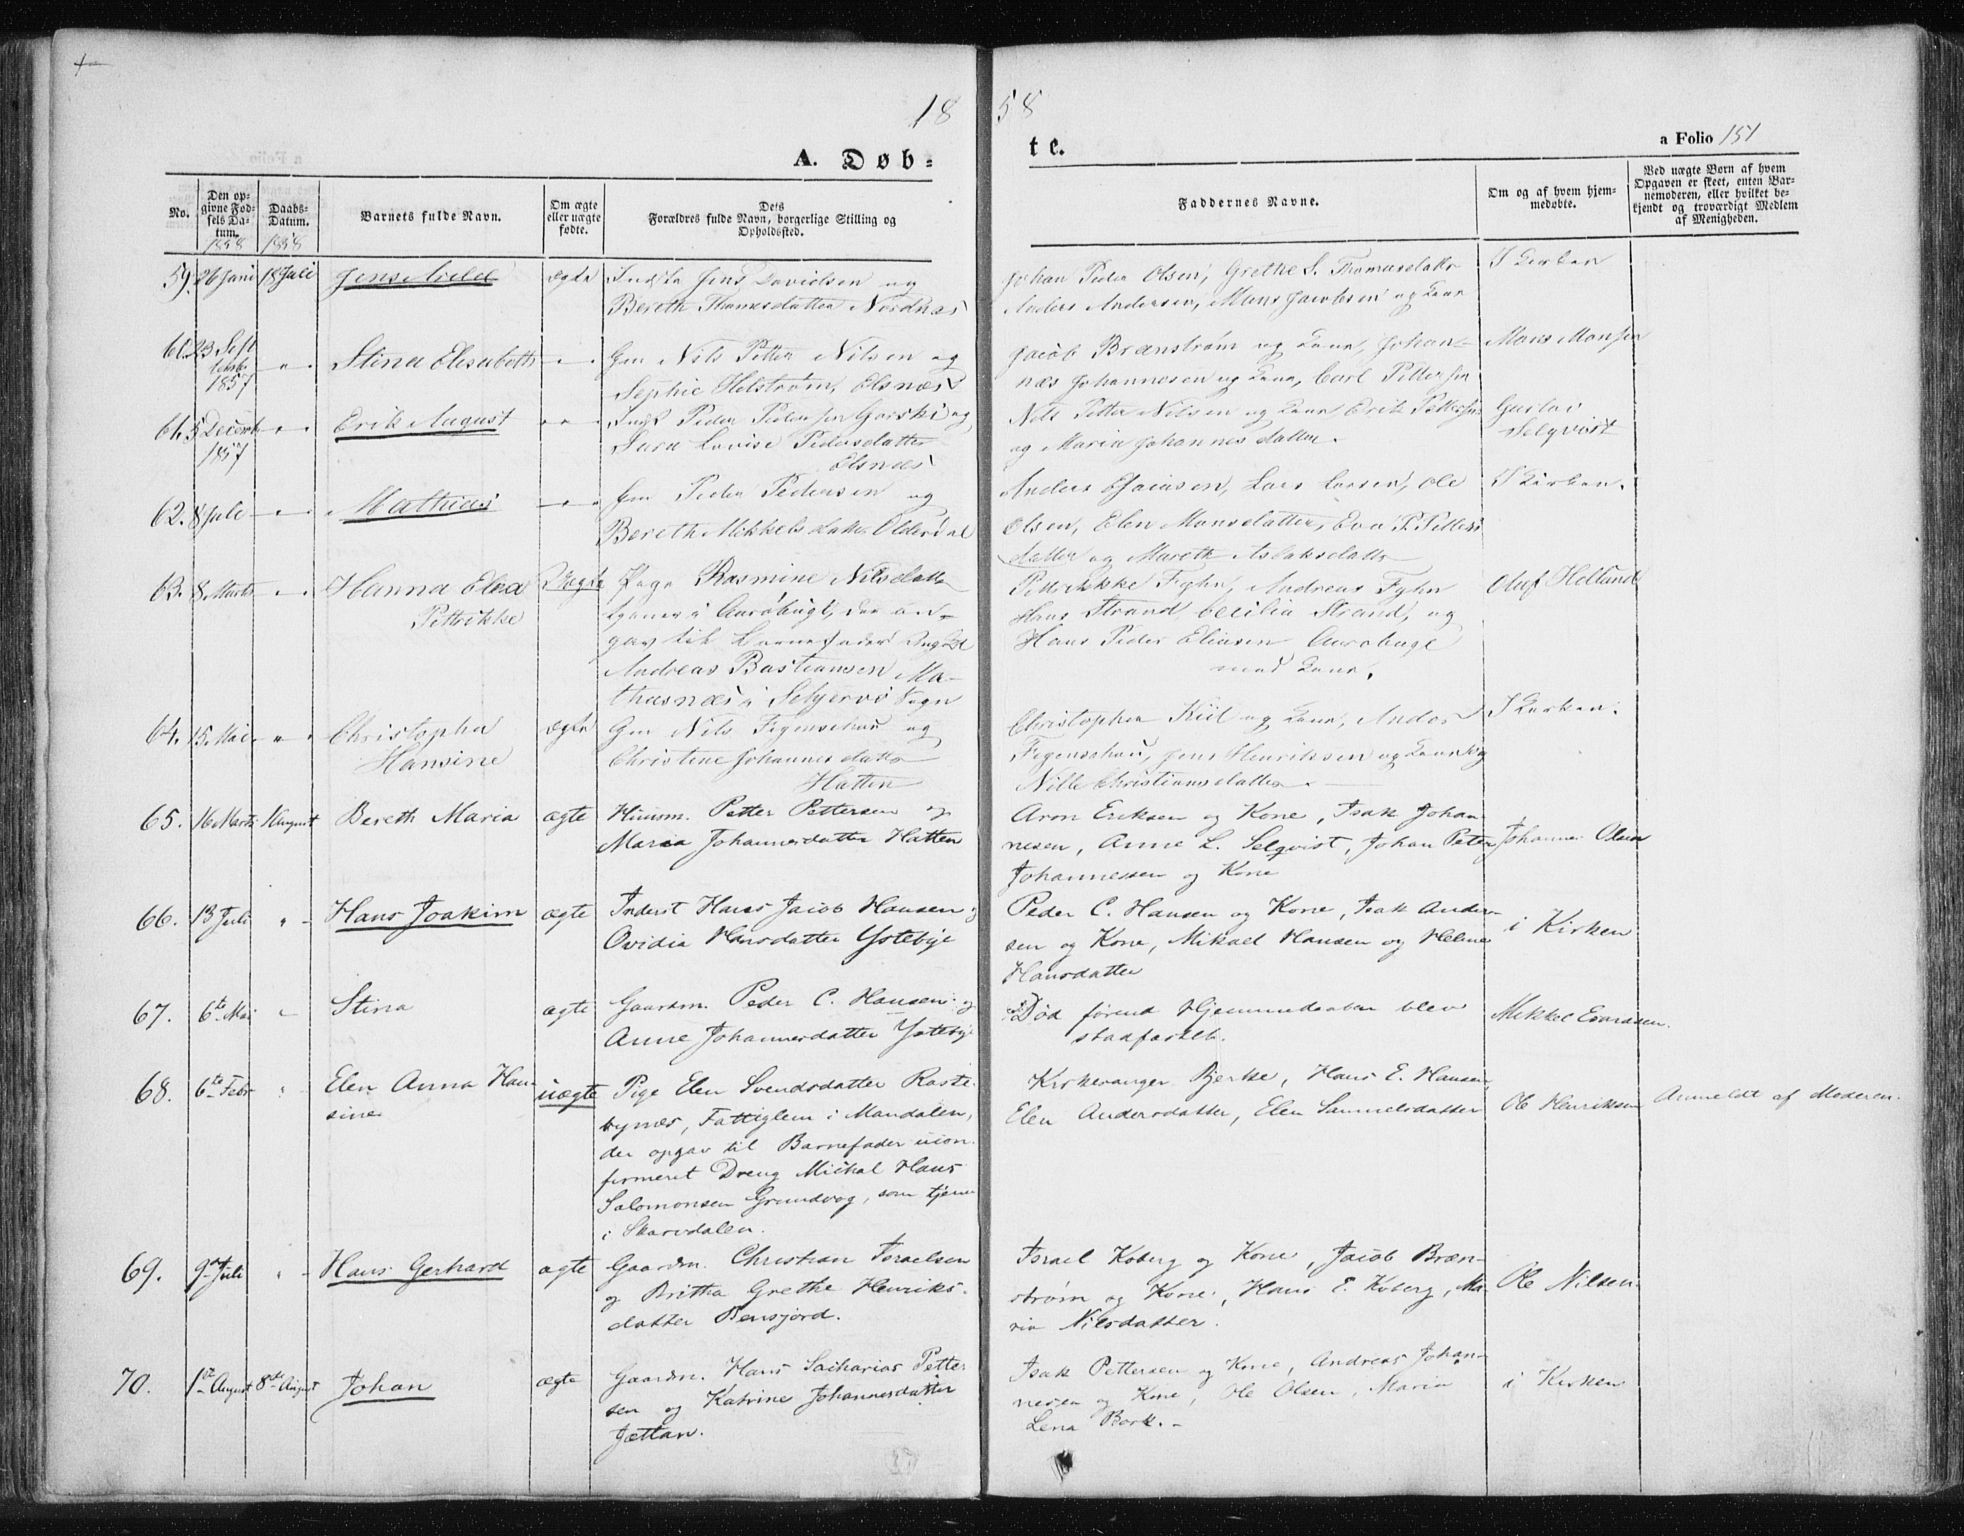 18
58
A. Døb-
te.
a Folio 151
No.
Den op-
givne Fød-
sels Da-
tum.
1858
Daabs-
Datum.
1858
Barnets fulde Navn.
Om ægte
eller uægte
fødte.
Dets
Forældres fulde Navn, borgerlige Stilling og
Opholdssted.
Faddernes Navne.
Om og af hvem hjem-
medøbte.
Ved uægte Børn af hvem
Opgaven er skeet, enten Bar-
nemoderen, eller hvilket be-
kjendt og troværdigt Medlem
af Menigheden.
59. 26 Juni 18 Juli Jens ægte Jens Davidsen og
Bereth Thomasdatter Nordnæs
Johan Peder Olsen, Grethe S. Thomasdatter
Anders Andersen, Mons Jacobsen og Kone
I Kirken
23 Sept
1857
Stina Elisabeth
Gm Nils Petter Nilsen og
Sophie Helstrøm, Elsnæs
Jacob Brænstrøm og Kone, Johan-
næs Johannesen og Kone, Carl Pettersen
Mons Monsen
61. 5 Decemb
1857
Erik August
Peder Pedersen Garski og
Sara Lovise Pedersdatter
Elsnæs
Nils Petter Nilsen og Kone Erik Pettersen
og Maria Johannesdatter.
Gustav
Selqvist
62. 8 Juli Mathias
Gm Peder Pedersen og
Bereth Mikkelsdatter Olderdal
Anders Lars Larsen, Ole
Olsen, Elen Monsdatter, Eva P. Petters
datter og Mareth Aslaksdatter
I Kirken.
63. 8 Marts Hanna Elea
Petrikke
Uægte
Pige Rasmine Nilsdatter
tjener i Aurøbugt, der an-
gav til Barnefader Ungkl
Andreas Bastiansen Ma-
thæsnæs i Schjervø Sogn
Petrikke Fyhn, Andreas Fyhn
Hans Strand, Cecilia Strand, og
Hans Peder Eliasen Aurøbugt
med Kone.
Oluf Hellund
64. 15 Mai Christopha
Hansine
ægte
Gm Nils Figenschau og
Christine Johannesdatter
Hatten
Christopher Kiil og Kone, Anders
Figenschau, Jens Henrikssen og Kone og
Nille Christiansdatter.
I Kirken.
65. 16 Marts 1 August Bereth Maria ægte Huusm. Petter Pettersen og
Maria Johannesdatter Hatten
Aron Eriksen og Kone, Isak Johan
nesen, Anne L. Selqvist, Johan Peter
Johannessen og Kone
Johannes Olsen
66. 13 Juli Hans Joakim ægte Inderst Hans Jacob Hansen og
Ovidia Hansdatter Ystebye
Peder C. Hansen og Kone, Isak Ander-
sen og Kone, Mikael Hansen og Helene
Hansdatter
i Kirken
67. 6te Mai Stina ægte Gaardm. Peder C. Hansen og
Anne Johannesdatter Ystebye
Død førend Hjemmedaaben blev
stadfæstet.
Mikkel Evardsen.
68. 6te Febr Elen Anna Han
sine
uægte
Pige Elen Svendsdatter Raste
bynes, Fattiglem i Mandalen,
der opgav til Barnefader ucon
firmeret Dreng Michal Hans
Salomonsen Grundvog, som tjener
i Skarvdalen.
Kirkesanger Bjerke, Hans E. Hansen,
Elen Andersdatter, Elen Samuelsdatter
Ole Henriksen
Anmeldt af Moderen.
69. 9de Juli Hans Gerhard ægte Gaardm. Christian Israelsen
og Britha Grethe Henriks-
datter Bensjord.
Israel Koberg og Kone, Jacob Bræn-
strøm og Kone, Hans E. Koberg, Ma-
ria Nilsdatter.
Ole Nilsen
70. 1ste August 8de August Johan ægte Gaardm. Hans Sacharias Petter
sen og Katrine Johannesdatter
Jættan.
Isak Pettersen og Kone, Andreas Johan-
nesen og Kone, Ole Olsen, Maria
Lena Bork.
i Kirken